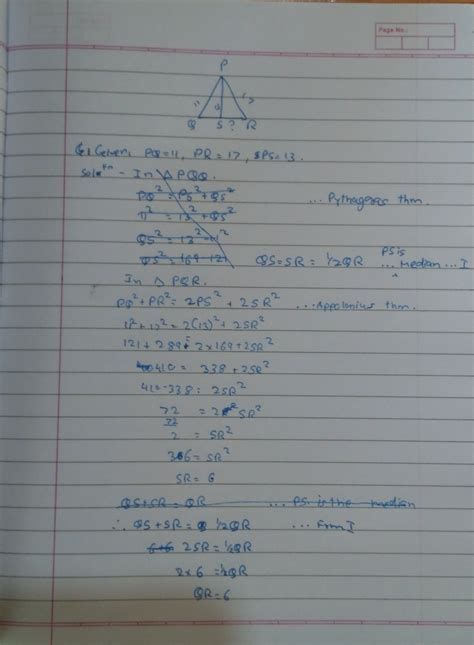 Page No.:
P
11 17
Q S ? R
Q1 Given, PQ=11, PR=17, PS=13.
Solnⁿ - In △PQQ.
PQ² = PS² + QS² ... Pythagoras thm.
11² = 13² + QS²
QS² = 13² - 11²
QS² = 169 - 121 QS=SR= 1/2QR PS is ... median ... I
In △ PQR.
PQ²+PR²= 2PS² + 2SR² ... Appolonius thm.
11²+17²=2(13)²+2SR²
121+289= 2×169+2SR²
410 = 338+2SR²
410-338= 2SR²
72 = 2 SR²
72
2 = SR²
36 = SR²
SR= 6
QS+SR=QR ... PS. is the median
∴ QS+SR= 1/2QR ... from I
6+6 2SR=1/2QR
2×6 =1/2QR
QR=6